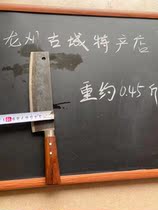 龙州古城特产店
重约0.45斤